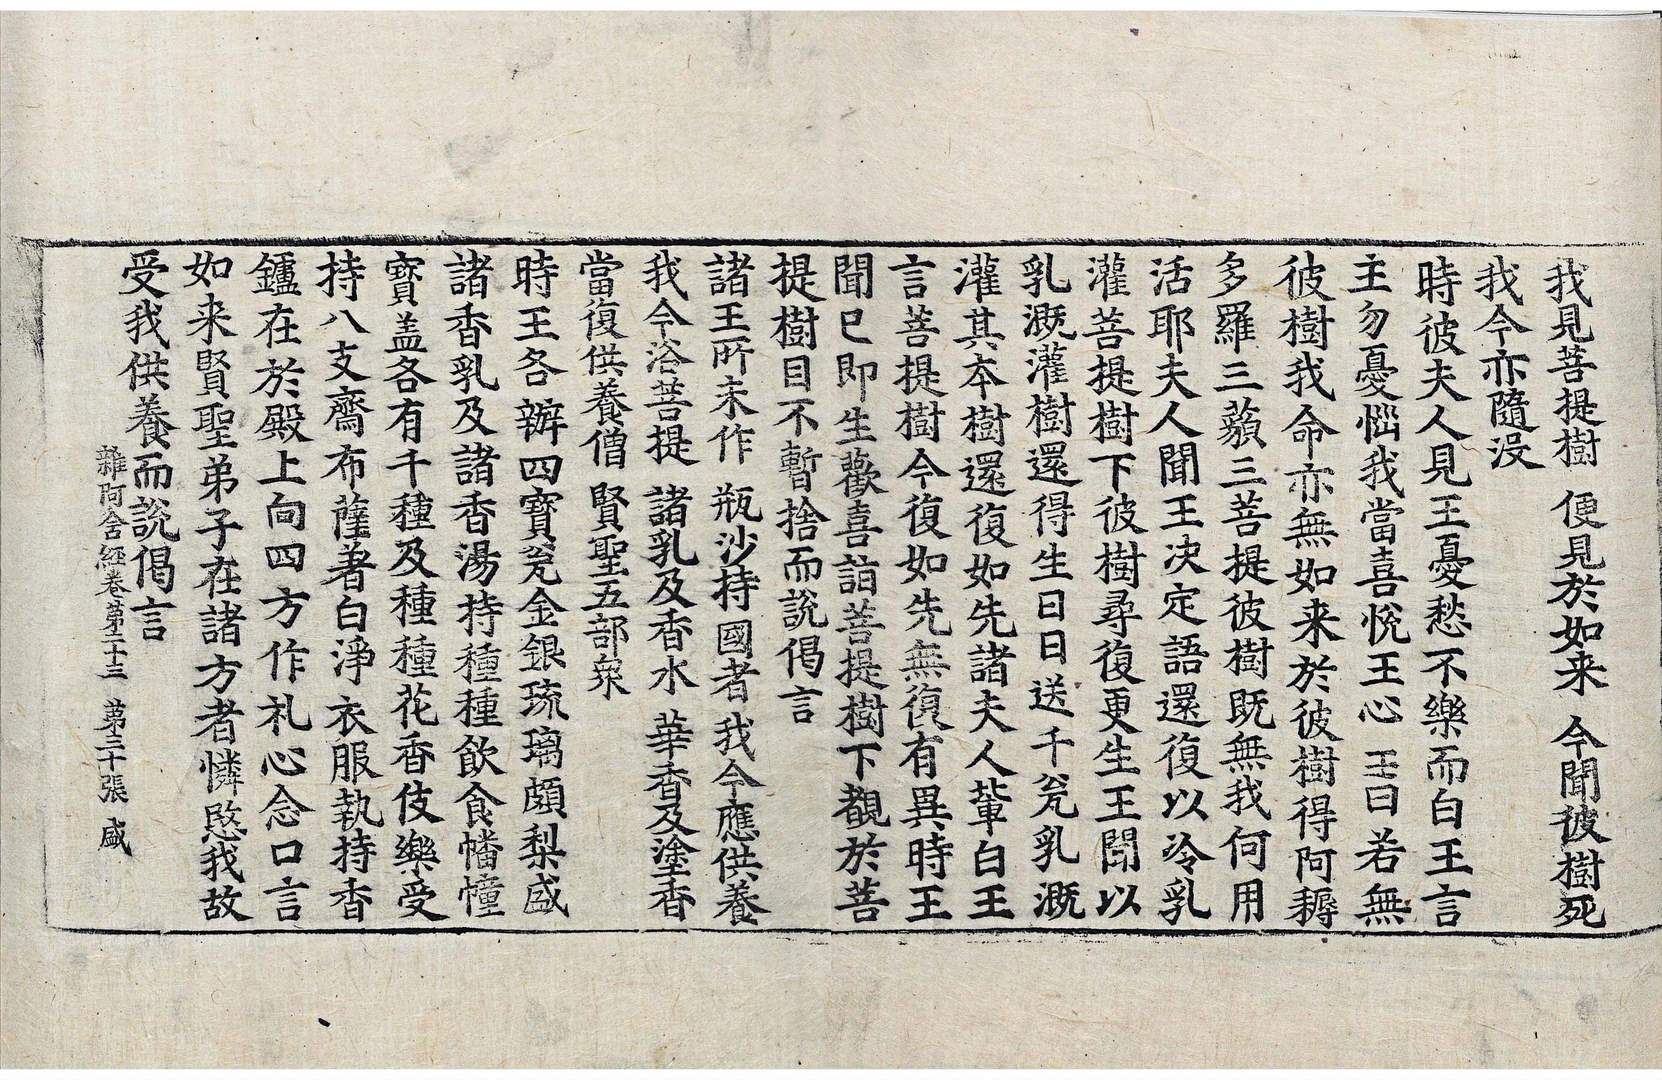 我見菩提樹 便見於如来 今聞彼樹死
我今亦隨没
時彼夫人見王憂愁不樂而白王言
主勿憂惱我當喜悅王心王曰若無
彼樹我命亦無如来於彼樹得阿耨
多羅三藐三菩提彼樹既無我何用
活耶夫人聞王决定語還復以冷乳
灌菩提樹下彼樹尋復更生王聞以
乳溉灌樹還得生日日送千瓮乳溉
灌其本樹還復如先諸夫人輩白王
言菩提樹今復如先無復有異時王
聞已即生歡喜詣菩提樹下覩於菩
提樹目不暫捨而說偈言
諸王所未作 瓶沙持國者 我今應供養
我今浴菩提 諸乳及香水 華香及塗香
當復供養僧 賢聖五部衆
時王各辦四寶瓮金銀琉璃頗梨盛
諸香乳及諸香湯持種種飲食幡幢
寶盖各有千種及種種花香伎樂受
持八支齋布薩著白淨衣服執持香
鑪在於殿上向四方作礼心念口言
如来賢聖弟子在諸方者憐愍我故
受我供養而說偈言
雜阿含経卷第二十三 第三十張 盛